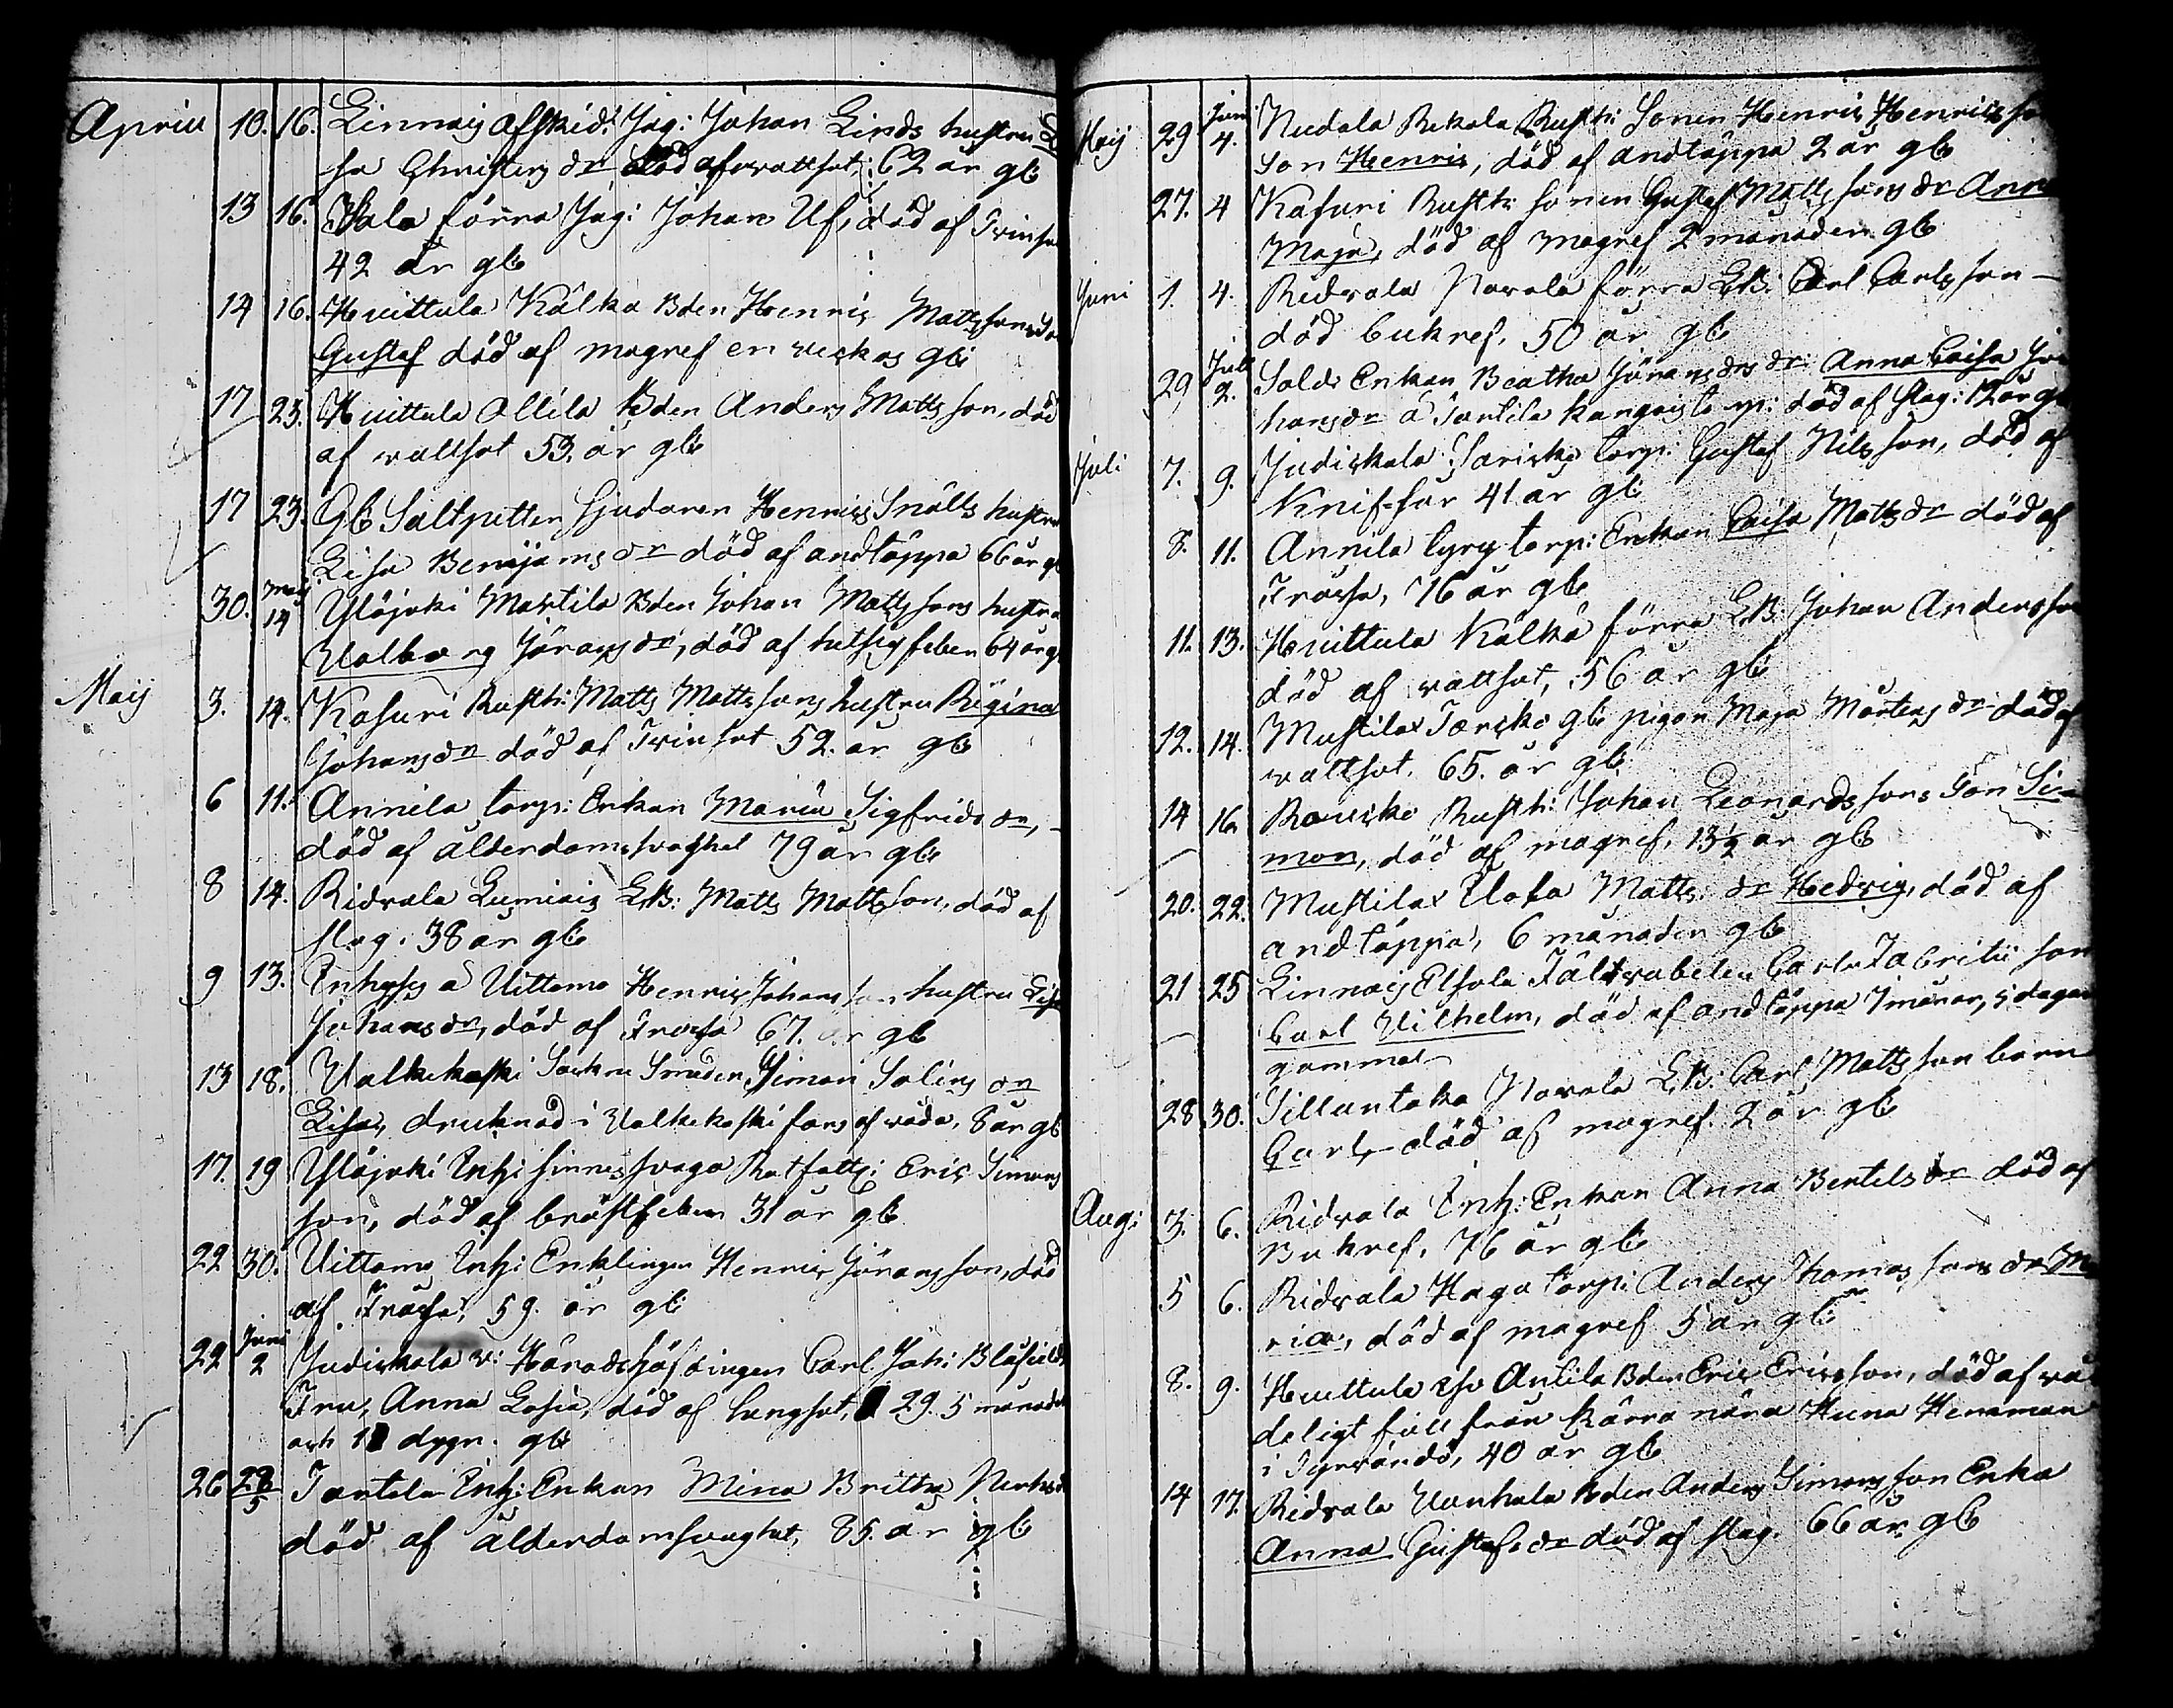 April 10. 16. Linnais afsked: Jäg: Johan Linds hustru
sa Christersdr död af wattsot, 62 år gl:
13 16. Sala förra Jäg: Johan Uf, död af Tvinsot
42 år gl:
14 16. Huittula Kälkä Bden Henric Mattssons son
Gustaf död af magref en veckas gl:
17 23. Huittula Ollila Bden Anders Mattsson, död
af wattsot 53. år gl:
17 23. Gl: Saltpitter Sjudaren Henrics Snälls hustru
Lisa Benjamsdr död af andtäppa 66 år gl
30. Maij 14 Ylöjoki Martila Bden Johan Mattssons hustru
Walborg Jöransdr, död af hetsig feber 64 år gl
Maij 3. 14. Kasuri Rusth: Matts Mattssons hustru Regina
Johansdr död af Tvinsot 52. år gl:
6 11. Annila torp: Enkan Maria Sigfridsdr,
död af ålderdomsvaghet 79 år gl:
8 14. Ridvala Lumiais LB: Matts Mattsson, död af
slag. 38 år gl:
9 13. Inhyses å Uittamo Henric Johansson hustru Lisa
Johansdr, död af Frossa 67. år gl:
13 18. Valkekoski Sockne Smeden Simon Salins dr
Lisa, drucknad i Valkekoski fors af våda, 8 år gl:
17. 19 Ylöjoki Inh: sinnes svaga Rotfattig: Eric Simons
son, död af bröstfeber 31 år gl:
22 30. Uittamo Inh: Enklingen Henric Jöransson, död
af Frossa, 59. år gl:
22 Juni 2 Judickala v: Häradshöfdingen Carl Joh: Blåfields
Fru, Anna Lovisa, död af lungsot, 29. 5 månader
och 1 dygn. gl:
26 28/5 Tantala Inh: Enkan Mina Britha
död af ålderdomsvaghet, 85. år gl:
Maij 29 Juni 4. Nudala Rekola Rusth: Sonen Henric Henricsson
Son Henric, död af andtäppa 2 år gl:
27. 4 Kasuri Rusth: sonen Gustaf Mattssons dr Anna
Maja, död af magref 2 månader gl:
Juni 1. 4. Ridvala Navala förra LB: Carl Carlsson
död bukref, 50 år gl:
29 Juli 2. Sold: Enkan Beatha Göransdrs dr: Anna Caisa Jo
hansdr å Tantila Kangais torp: död af slag: 12 år gl
Juli 7. 9. Judickala Sariske torp: Gustaf Nilsson, död af
Knif-sår 41 år gl:
8. 11. Annila Cyry torp: Enkan Caisa Mattsdr död af
Frossa, 76 år gl:
11. 13. Huittula Kälkä förra LB: Johan Andersson
död af vattsot, 56 år gl:
12. 14. Mustila Tærske gl: pigan Maja Mårtensdr död af
vattsot. 65. år gl:
14 16 Rauiske Rusth: Johan Leonardssons Son Si
mon, död af magref, 13½ år gl:
20. 22. Mustila Uota Matts: dr Hedvig, död af
andtäppa, 6 månader gl:
21 25 Linnais Elsola Fältvebelen Carl Fabritii son
Carl Vilhelm, död af andtäppa 7 månar, 5 dagar
gammal
28 30. Sillantaka Navala LB: Carl Mattsson barn
Carl, död af magref. 2 år gl:
Aug: 3. 6. Ridvala Inh: Enkan Anna Bertelsdr död af
Bukref, 76 år gl:
5 6. Ridvala Haga torp: Anders Thomassons dr Ma
ria, död af magref 5 år gl:
8. 9. Huittula Antila Bden Eric Ericsson, död af vå
deligt fall från kärra nära Huna Heneman
i Tyrvändö, 40 år gl:
14 17. Ridvala Vanhala Bden Anders Simonsson Enka
Anna Gustafsdr död af slag. 66 år gl: